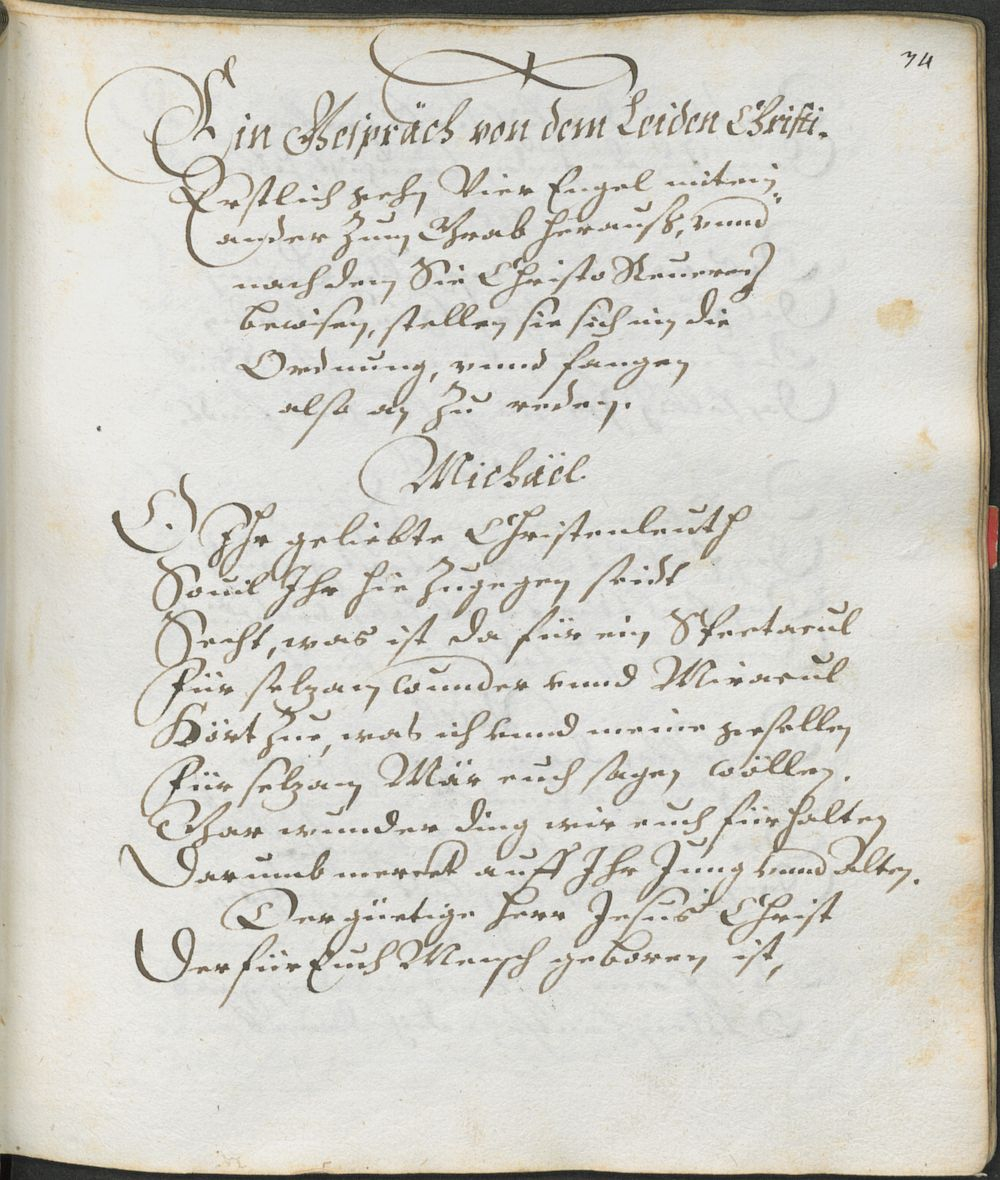 34
Ein Gespräch von dem Leiden Christi.
Erstlich gehn Vier Engel mitein-
ander Zum Grab herauß, vnnd
nachdem Sie Christo Reuerentz
bewisen, stellen sie sich in die
Ordnung, vnnd fangen
also an zu reden.
Michaël.
O Ihr geliebte Christenleuth
Souil Ihr hie Zugegen seidt
Secht, was ist da für ein Spectacul
Für selzam wunder vnnd Miracul
Hört Zue, was ich vnnd meine gesellen
Für selzam Mär euch sagen wöllen.
Gar wunder ding wir euch fürhalten
Darumb merckt auff Ihr Jung vnnd Alten.
Der güetige Herr Jesus Christ
Der für Euch Mensch geboren ist,